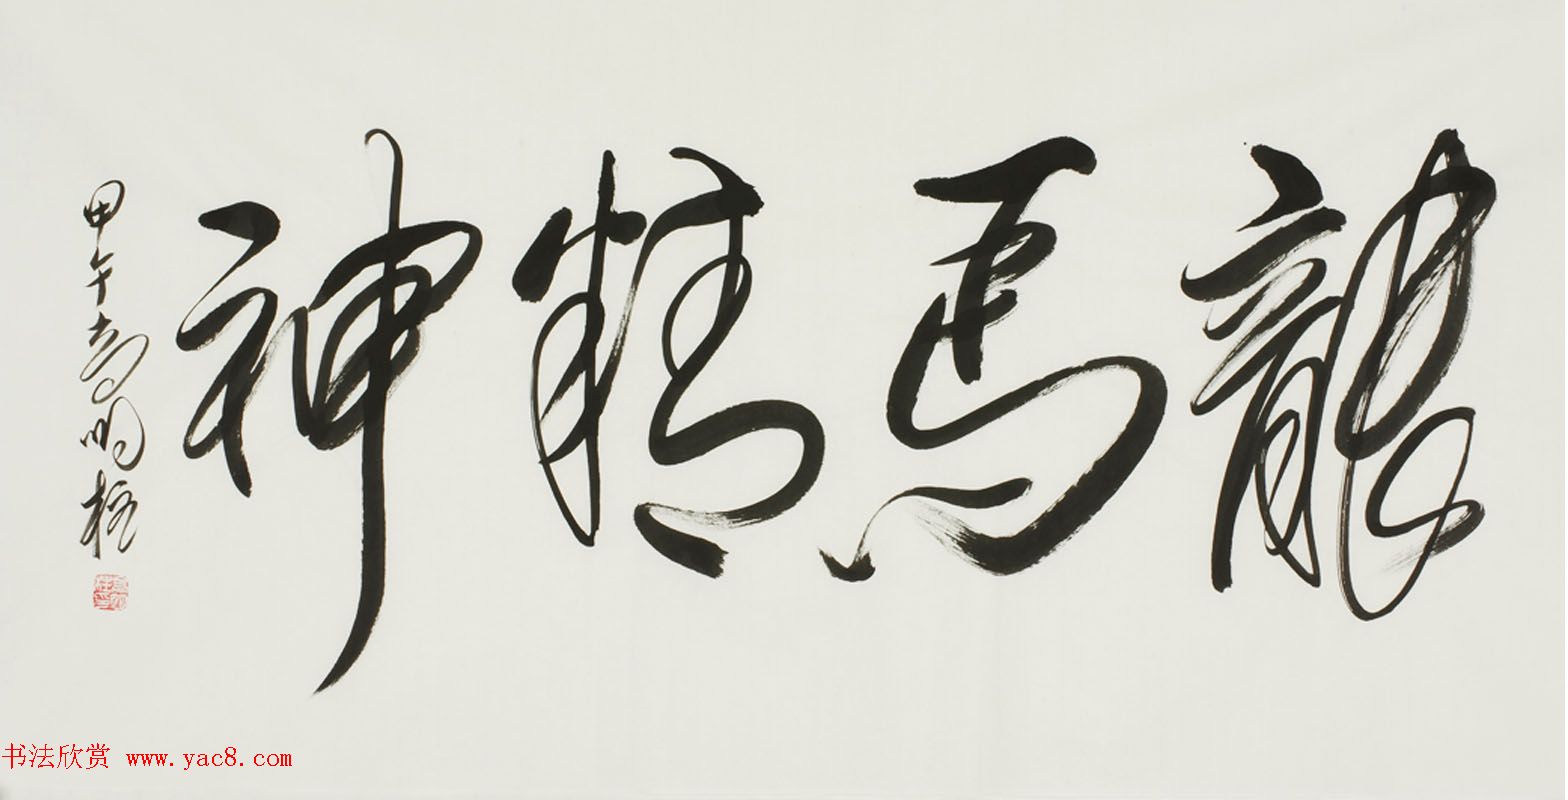 龍馬精神
甲午高明柱
书法欣赏 www.yac8.com